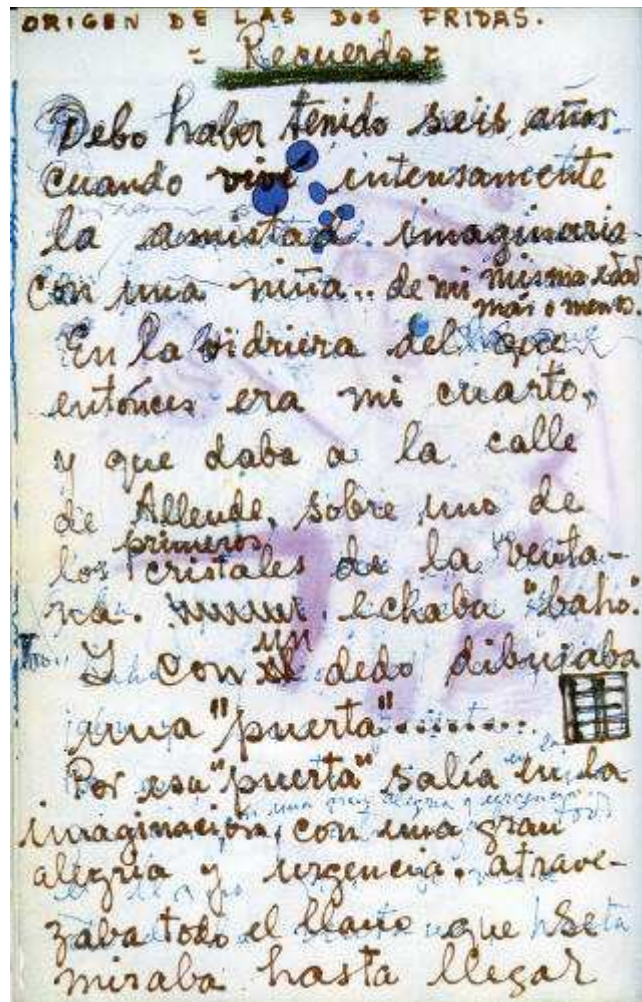 ORIGEN DE LAS DOS FRIDAS.
- Recuerdo -
Debo haber tenido seis años
cuando viví intensamente
la amistad imaginaria
con una niña.. de mi misma edad
más o menos.
En la vidriera del que
entónces era mi cuarto,
y que daba a la calle
de Allende, sobre uno de
los primeros cristales de la venta-
na. echaba "baho".
Y con un dedo dibujaba
una "puerta".........
Por esa "puerta" salía en la
imaginación, con una gran
alegría y urgencia. atrave-
zaba todo el llano que se
miraba hasta llegar